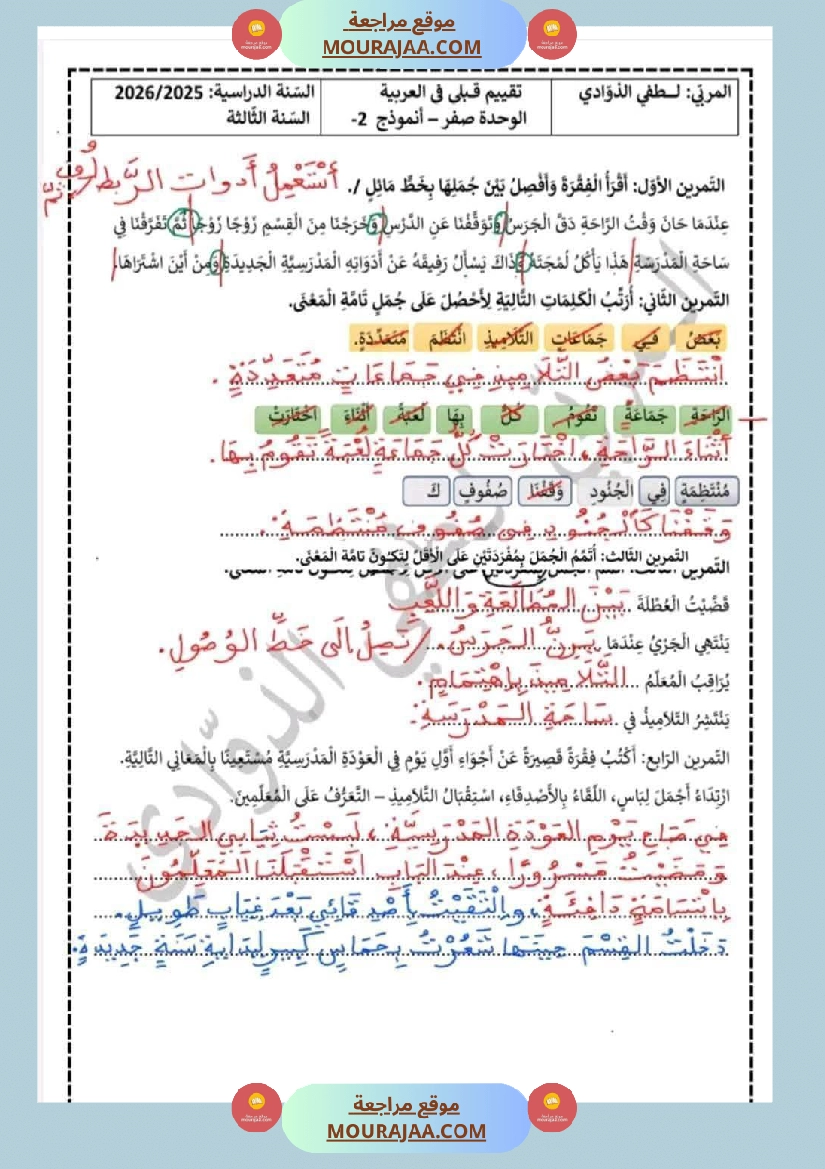 موقع مراجعة
MOURAJAA.COM
المربّي: لـطفي الذوّادي
تقييم قبلي في العربية
السّنة الدراسية: 2026/2025
الوحدة صفر – أنموذج 2-
السّنة الثّالثة
التّمرين الأوّل: أَقْرَأُ الْفِقْرَةَ وَأَفْصِلُ بَيْنَ جُمَلِهَا بِخَطٍّ مَائِلٍ /. أَسْتَعْمِلُ أَدوات الرَّبط ثمّ
عِنْدَمَا حَانَ وَقْتُ الرَّاحَةِ دَقَّ الْجَرَسُ / وَتَوَقَّفْنَا عَنِ الدَّرْسِ / وَخَرَجْنَا مِنَ الْقِسْمِ زَوْجًا زَوْجًا / ثُمَّ تَفَرَّقْنَا فِي
سَاحَةِ الْمَدْرَسَةِ / هَذَا يَأْكُلُ لُمْجَتَهُ / وَذَاكَ يَسْأَلُ رَفِيقَهُ عَنْ أَدَوَاتِهِ الْمَدْرَسِيَّةِ الْجَدِيدَةِ / وَمِنْ أَيْنَ اشْتَرَاهَا.
التّمرين الثّاني: أُرَتِّبُ الْكَلِمَاتِ التَّالِيَةِ لِأَحْصُلَ عَلَى جُمَلٍ تَامَّةِ الْمَعْنَى.
بَعْضُ فِي جَمَاعَاتٍ التَّلَامِيذِ انْتَظَمَ مُتَعَدِّدَةٍ.
اَنْتَظَمَ بَعْضُ التَّلَامِيذِ فِي جَمَاعَاتٍ مُتَعَدِّدَةٍ.
الرَّاحَةِ جَمَاعَةٍ تَقُومُ كُلُّ بِهَا لُعْبَةً أَثْنَاءَ اخْتَارَتْ
أَثْنَاءَ الرَّاحَةِ، اخْتَارَتْ كُلُّ جَمَاعَةٍ لُعْبَةً تَقُومُ بِهَا.
مُنْتَظِمَةٍ فِي الْجُنُودِ وَقَفْنَا صُفُوفٍ كَ
وَقَفْنَا كَالْجُنُودِ فِي صُفُوفٍ مُنْتَظِمَةٍ.
التّمرين الثّالث: أُتَمِّمُ الْجُمَلَ بِمُفْرَدَتَيْنِ عَلَى الْأَقَلِّ لِتَكُونَ تَامَّةَ الْمَعْنَى.
قَضَّيْتُ الْعُطْلَةَ بَيْنَ المُطَالَعَةِ وَ اللَّعِبِ
يَنْتَهِي الْجَرْيُ عِنْدَمَا يَرِنُّ الجَرَسُ. / نَصِلُ إِلَى خَطِّ الوُصُولِ.
يُرَاقِبُ الْمُعَلِّمُ التَّلَامِيذَ بِاهْتِمَامٍ.
يَنْتَشِرُ التَّلَامِيذُ فِي سَاحَةِ المَدْرَسَةِ.
التّمرين الرّابع: أَكْتُبُ فِقْرَةً قَصِيرَةً عَنْ أَجْوَاءِ أَوَّلِ يَوْمٍ فِي الْعَوْدَةِ الْمَدْرَسِيَّةِ مُسْتَعِينًا بِالْمَعَانِي التَّالِيَةِ.
ارْتِدَاءُ أَجْمَلَ لِبَاسٍ، اللِّقَاءُ بِالْأَصْدِقَاءِ، اسْتِقْبَالُ التَّلَامِيذِ – التَّعَرُّفُ عَلَى الْمُعَلِّمِينَ.
يَوْمِ العَوْدَةِ المَدْرَسِيَّةِ، لَبِسْتُ ثِيَابِي الجَدِيدَةَ
وَ مَضَيْتُ مَسْرُورًا، عِنْدَ البَابِ اسْتَقْبَلَنَا الْمُعَلِّمُونَ
بِابْتِسَامَةٍ دَافِئَةٍ، وَ الْتَقَيْتُ بِأَصْدِقَائِي بَعْدَ غِيَابٍ طَوِيلٍ.
دَخَلْتُ القِسْمَ حِينَهَا شَعُرْتُ بِحَمَاسٍ كَبِيرٍ لِبِدَايَةِ سَنَةٍ جَدِيدَةٍ.
المربّي لطفي الذوّادي
موقع مراجعة
MOURAJAA.COM